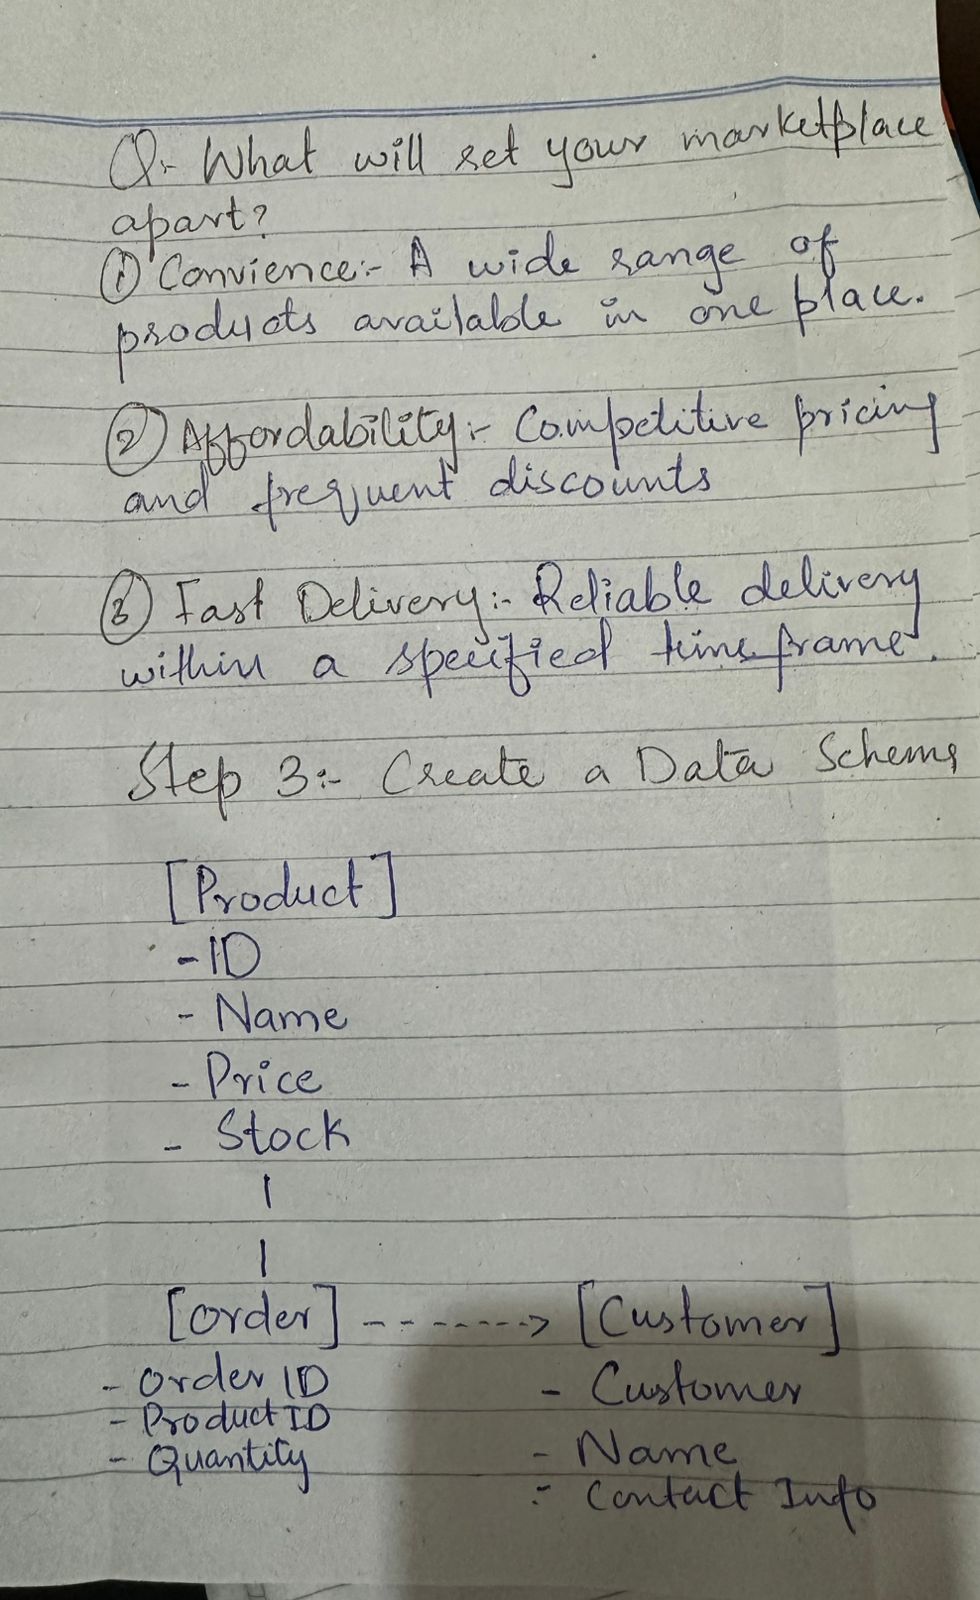 Q:- What will set your marketplace
apart?
① Convience:- A wide range of
products available in one place.
② Affordability:- Competitive pricing
and frequent discounts
③ Fast Delivery:- Reliable delivery
within a specified time frame.
Step 3:- Create a Data Schema
[Product]
- ID
- Name
- Price
- Stock
[Order] -------> [Customer]
- Order ID
- Product ID
- Quantity
- Customer
- Name
- Contact Info